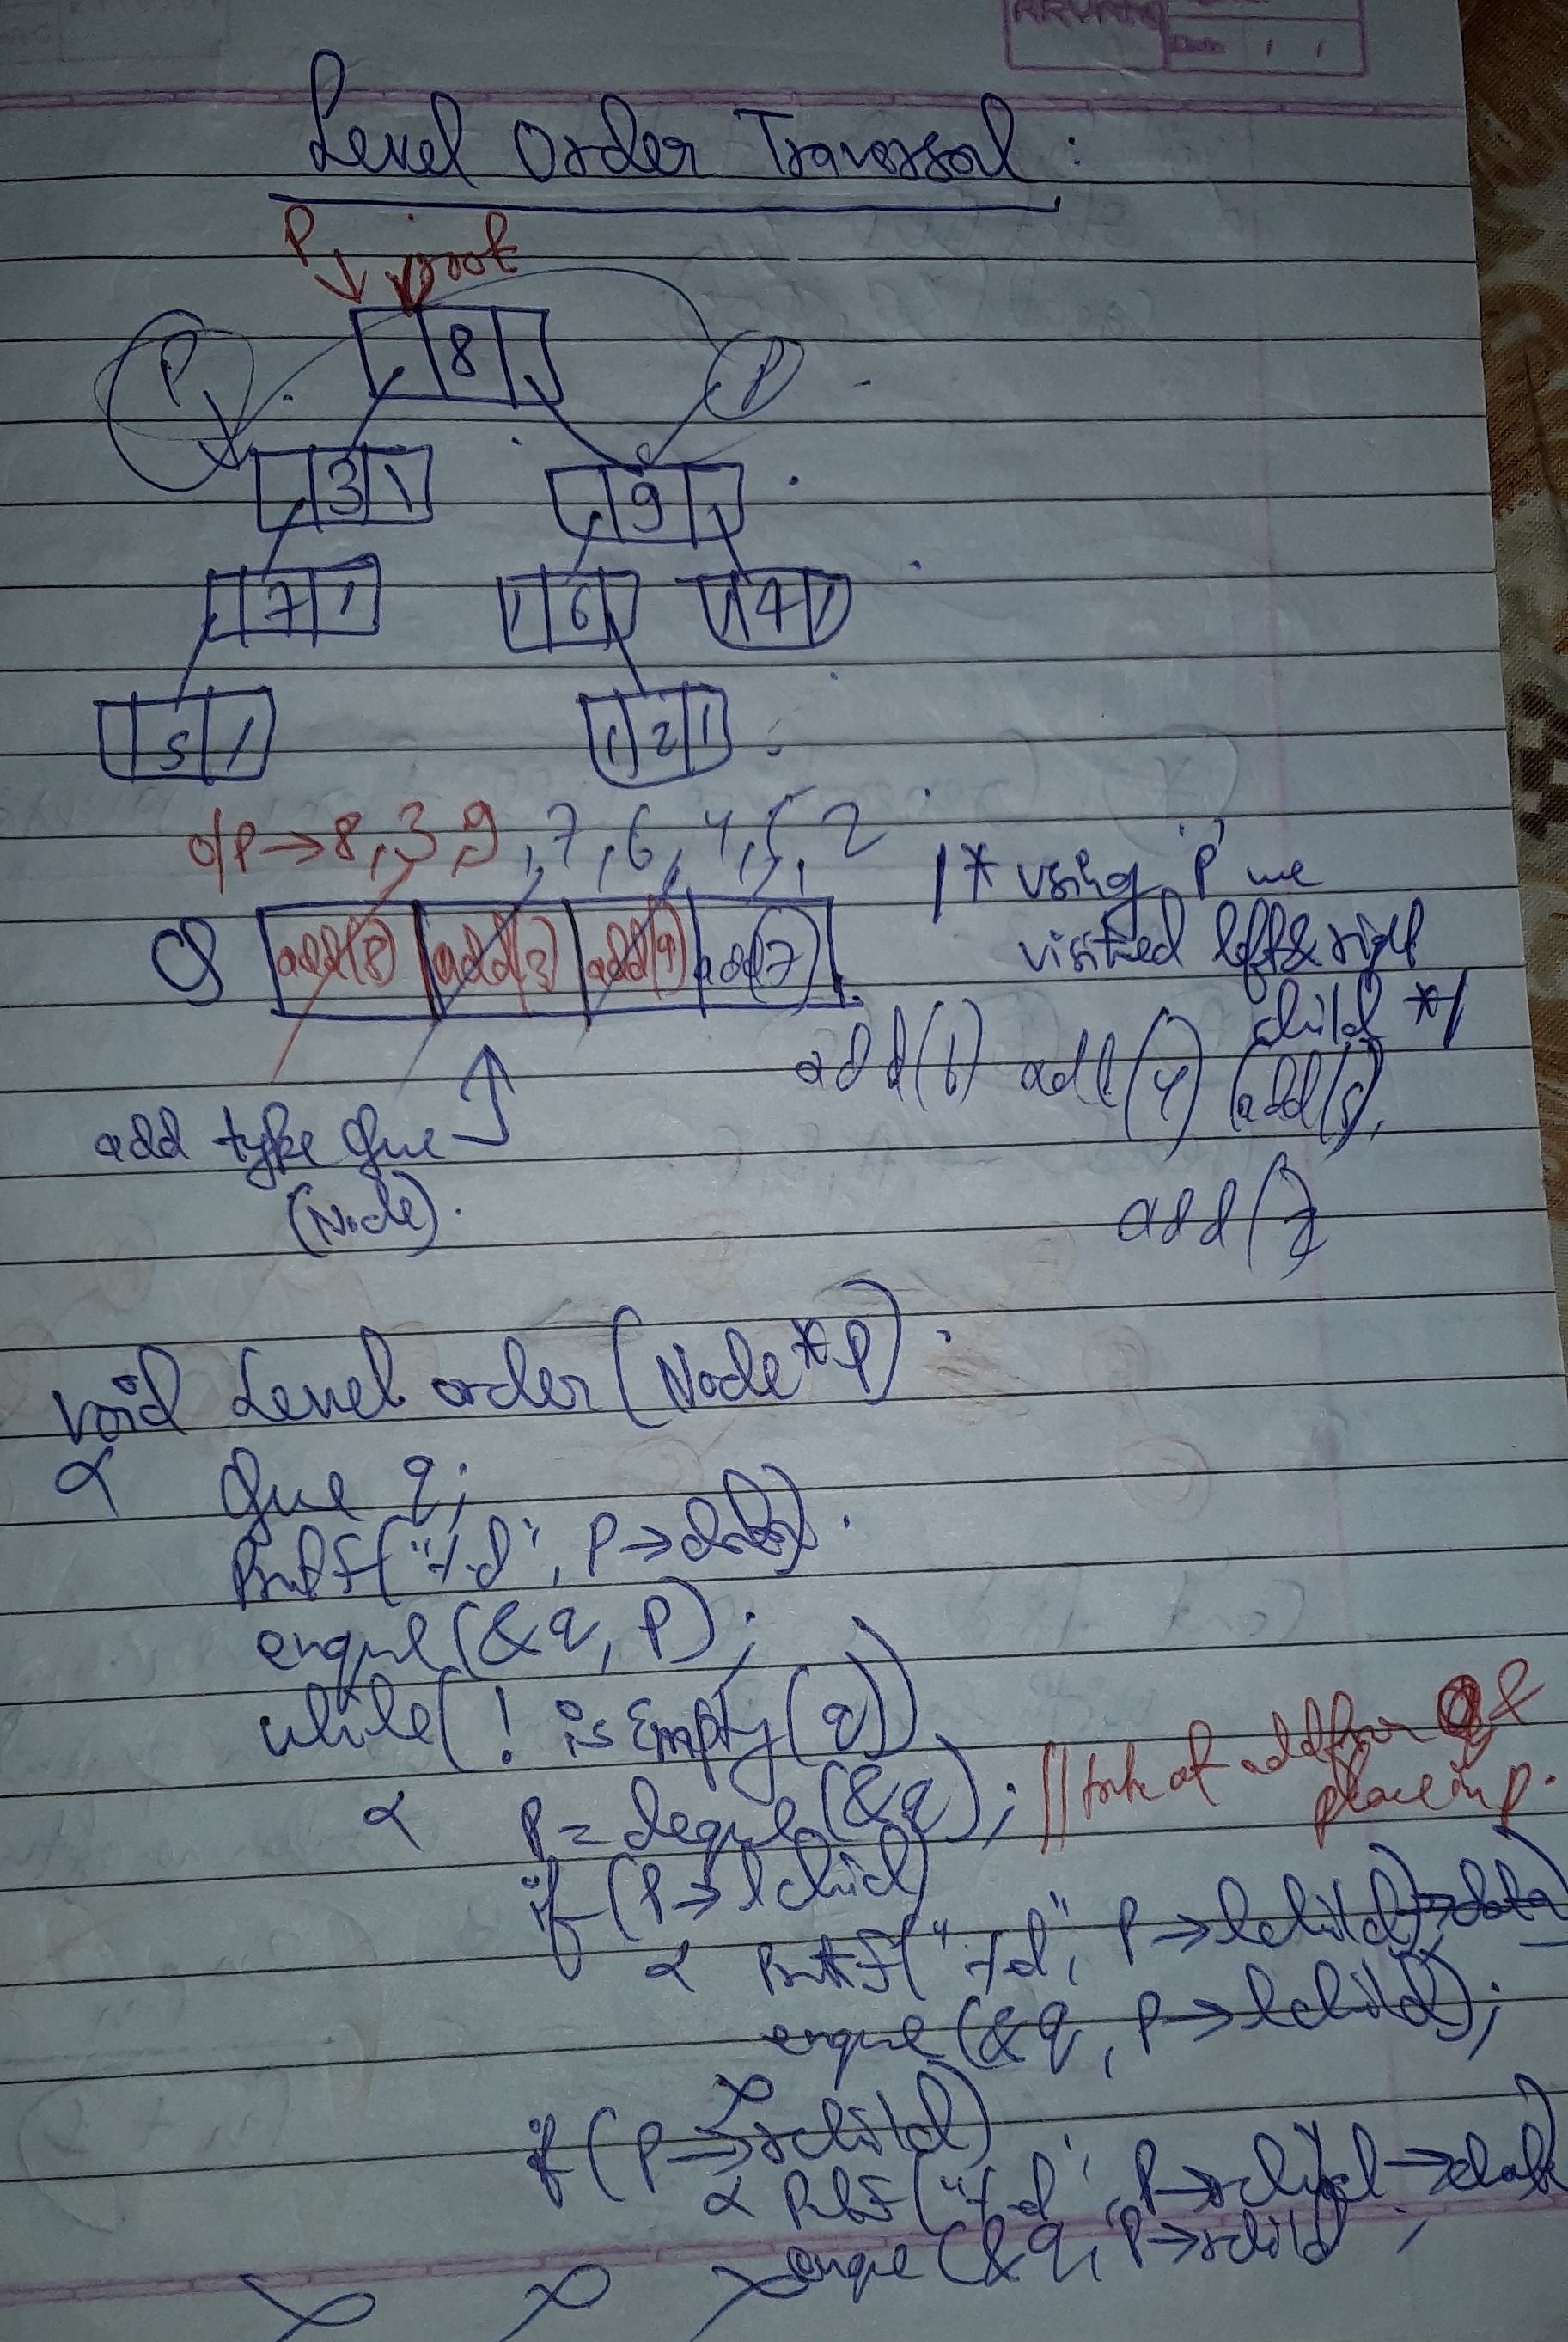 ARYAN
Date
Level Order Traversal :
P root
P 8 P
3 9
7 6 4
5 2
o/p → 8, 3, 9, 7, 6, 4, 5, 2
/* using 'P' we
visited left & right
child */
Q add(8) add(3) add(9) add(7)
add(6) add(4) add(5),
add(2
add type Que
(Node).
void Level order (Node *P)
{ Que q;
Printf("%d", P→data).
enque(&q, P);
while(! isEmpty(q))
{ P = deque(&q); // take at add from Q &
place in p.
if (P→lchild)
{ Printf("%d", P→lchild→data)
enque(&q, P→lchild);
}
if (P→rchild)
{ Printf("%d", P→rchild→data
enque(&q, P→rchild ;
} } }